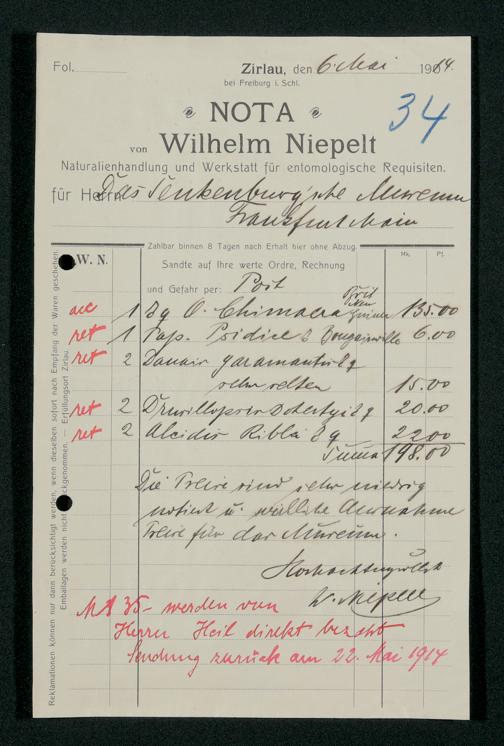 Fol.
Zirlau, den 6. Mai 1914.
bei Freiburg i. Schl.
34
NOTA
von Wilhelm Niepelt
Naturalienhandlung und Werkstatt für entomologische Requisiten.
für Herrn Das Senkenburg'sche Museum
Frankfurt Main
Zahlbar binnen 8 Tagen nach Erhalt hier ohne Abzug.
W. N.
Mk. Pf.
Sandte auf Ihre werte Ordre, Rechnung
und Gefahr per: Post
acc 1 O. Chimaera 135.00
ret 1 Pap. Bougainville 6.00
ret 2 Danais
sehr selten 15.00
ret 2 20.00
ret 2 Alcidis 22.00
Summa 198.00
Die Preise sind sehr niedrig
notiert u. Ausnahme
Preise für das Museum.
Hochachtungsvollst
W. Niepelt
MK 35- werden von
Herrn Heil direkt bezahlt
Sendung zurück am 22. Mai 1914
Reklamationen können nur dann berücksichtigt werden, wenn dieselben sofort nach Empfang der Waren geschehen.
Emballagen werden nicht zurückgenommen. — Erfüllungsort Zirlau.